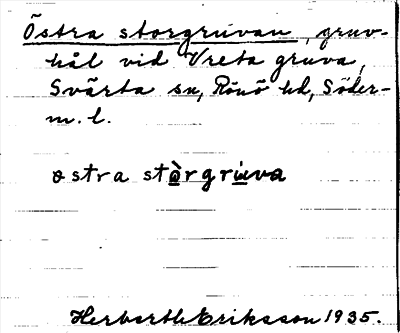 Östra storgruvan, gruv-
hål vid Vreta gruva,
Svärta sn, Rönö hd, Söder-
m. l.
østra stòrgruva
Herbert Eriksson 1935.